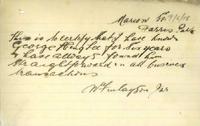 Marion Co 9/5/18
Farris Pa
This is to certify that I have known
George Hing Lee for six years
& have always found him
straightforward in all business
transactions
W Finlayson